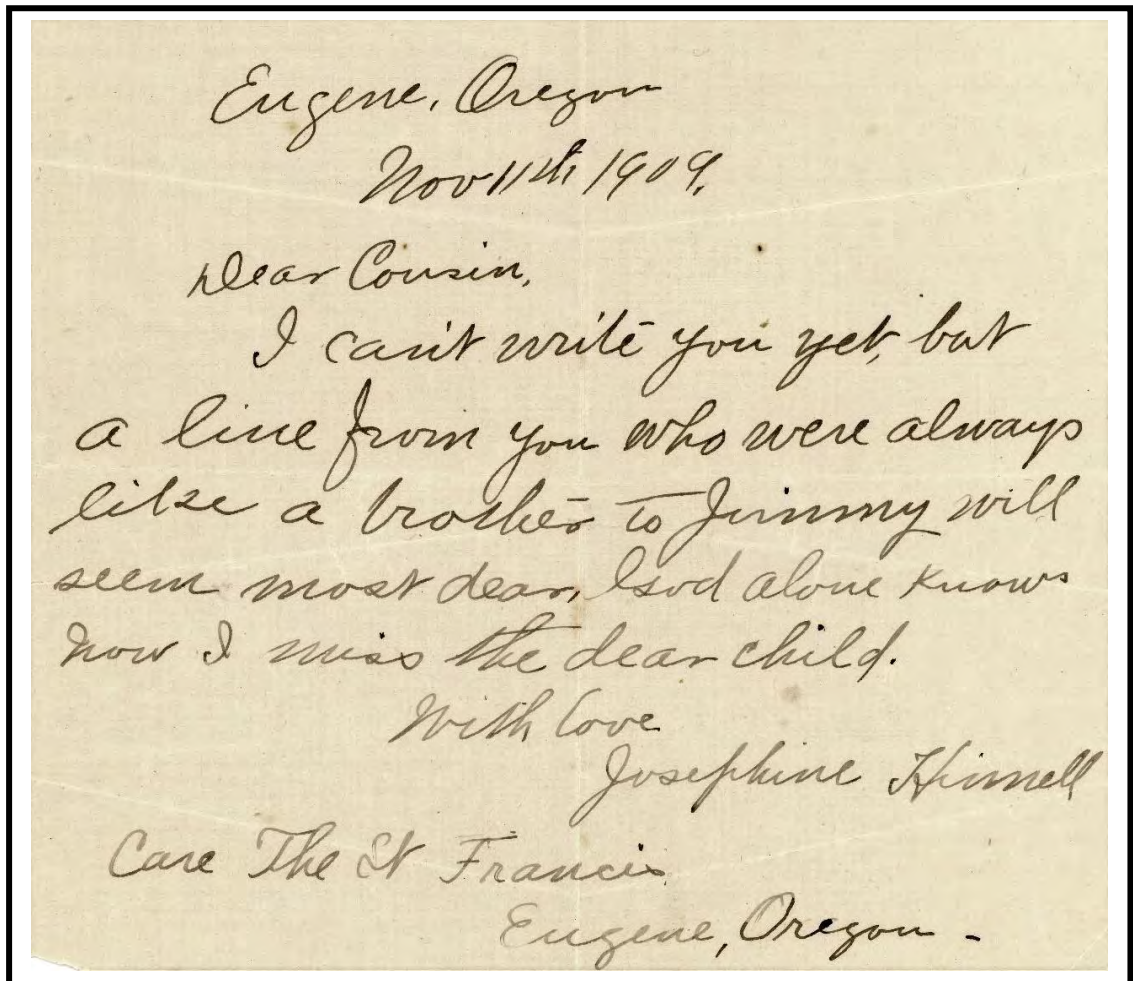 Eugene, Oregon
Nov 11th 1909.
Dear Cousin,
I can't write you yet, but
a line from you who were always
like a brother to Jimmy will
seem most dear, God alone knows
how I miss the dear child.
With love
Josephine
Care The St Francis
Eugene, Oregon -